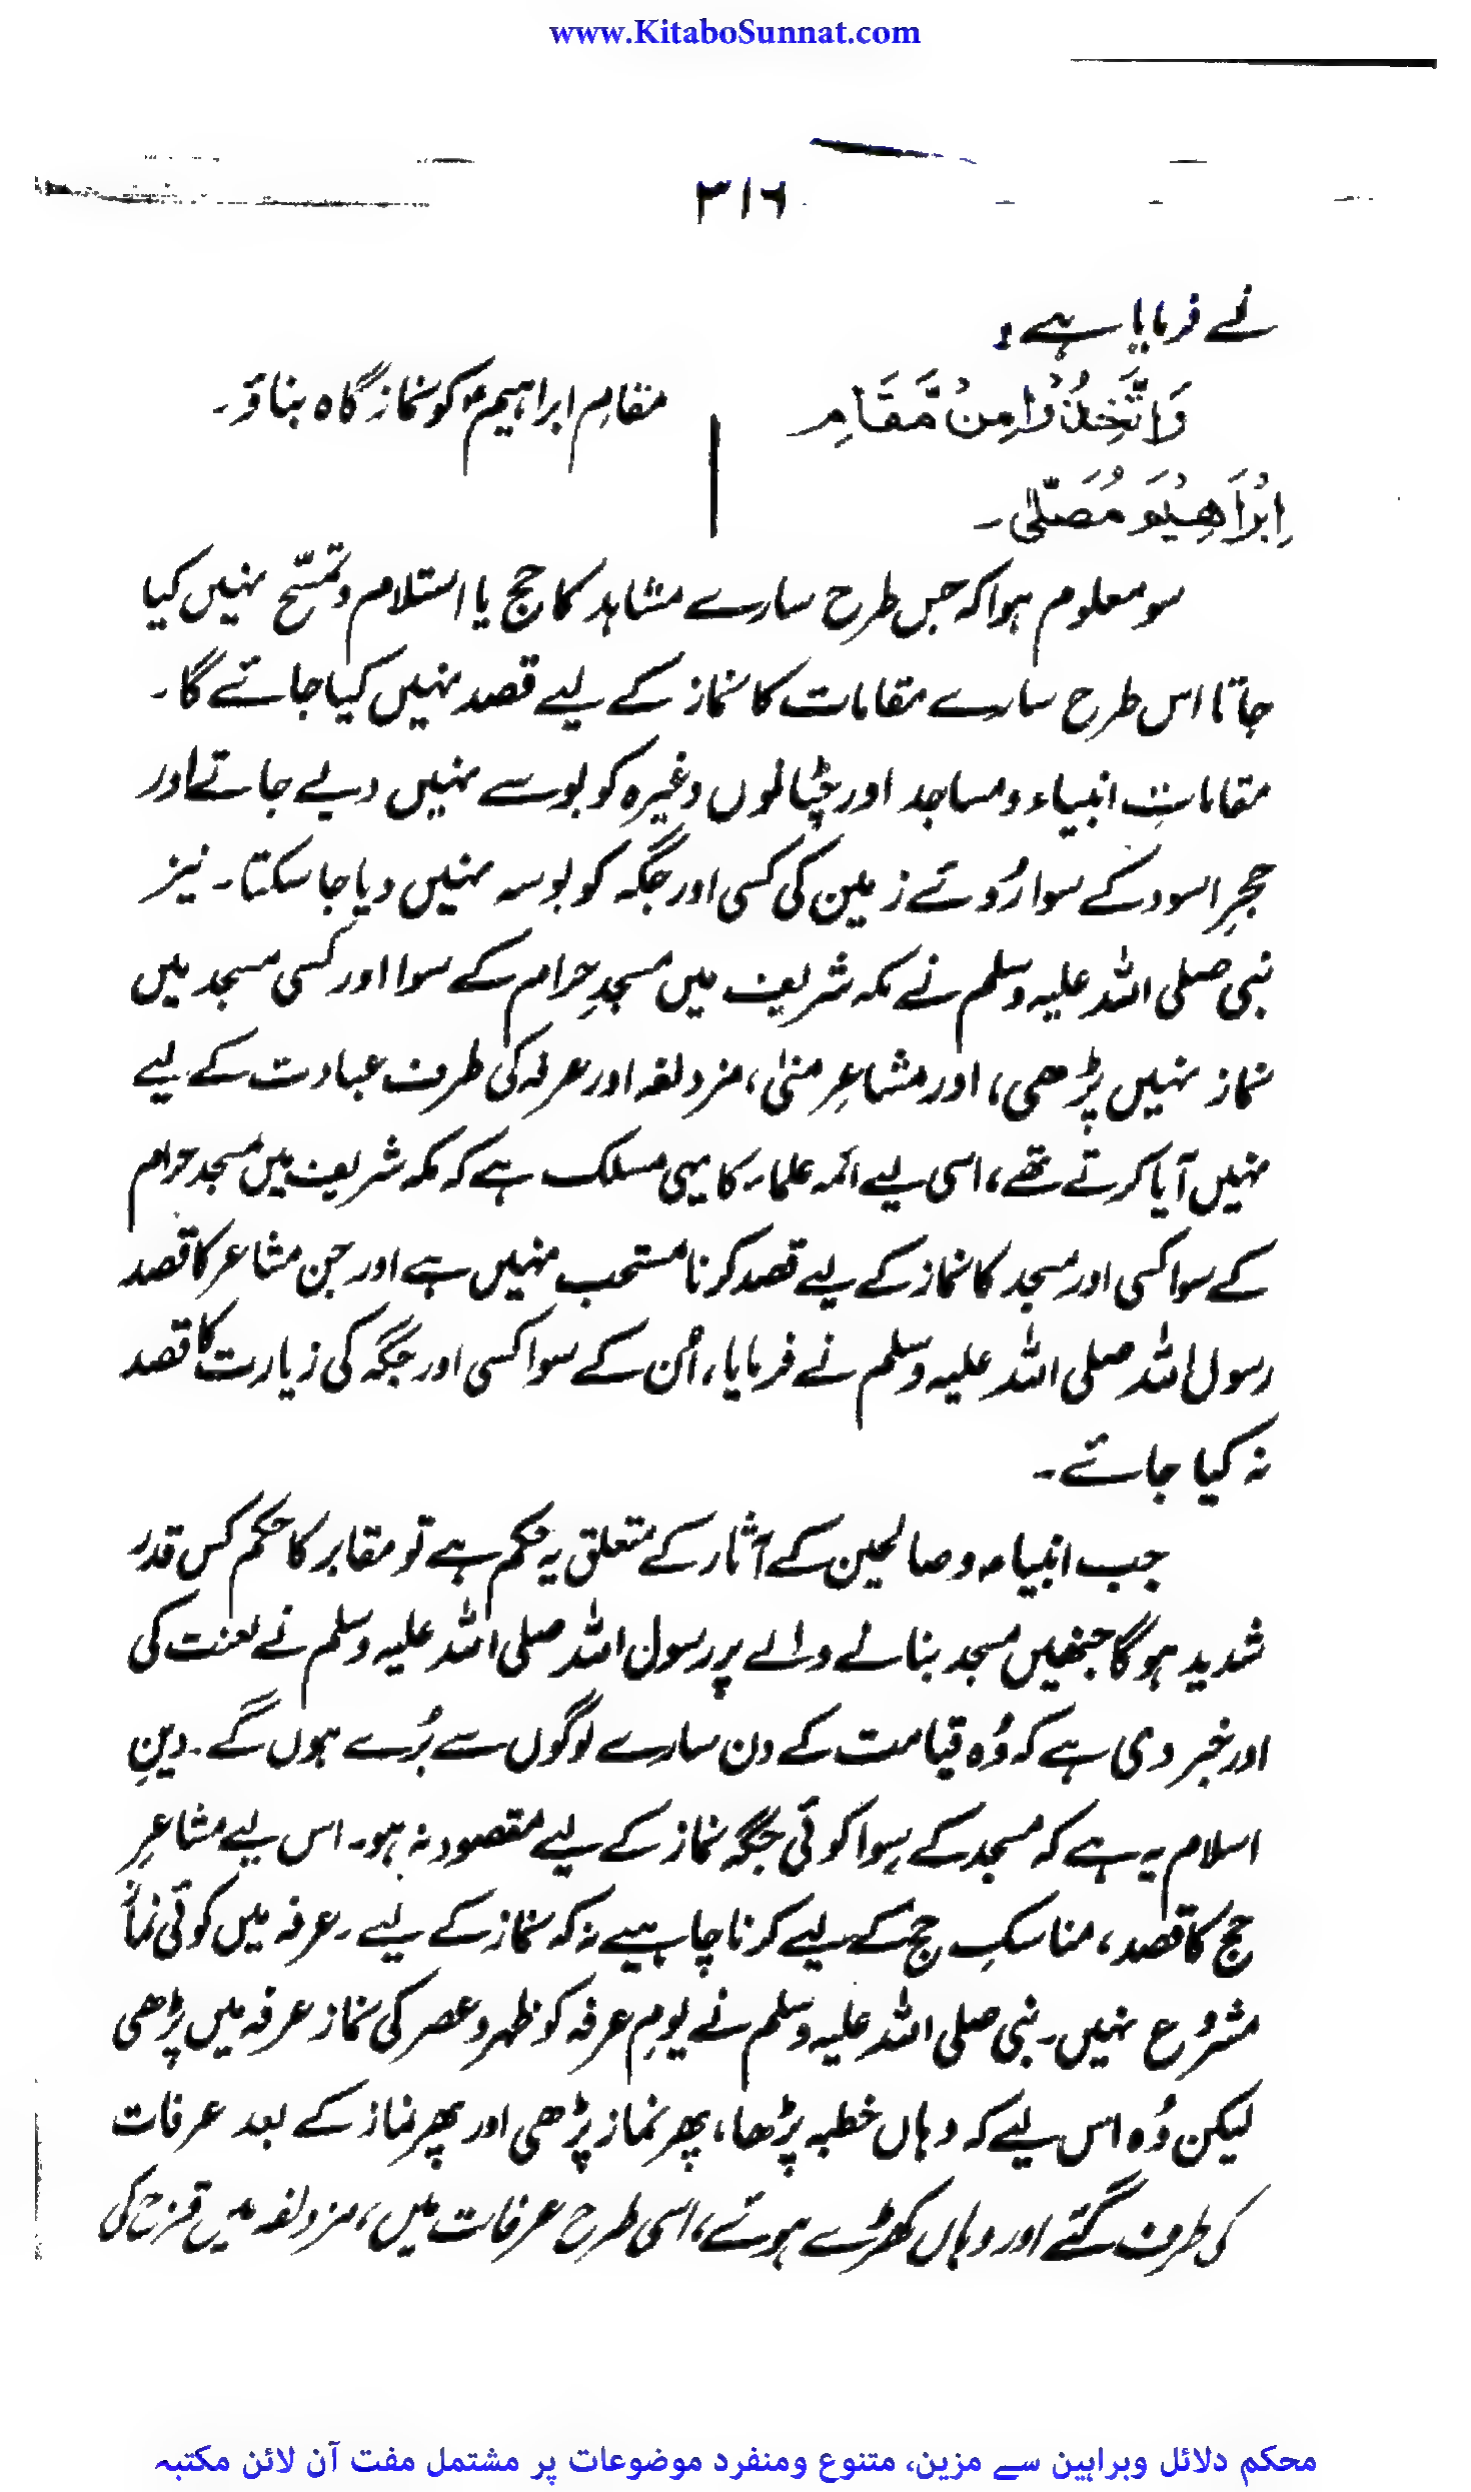 www.KitaboSunnat.com
۳۱۶
نے فرمایا ہے:
وَاتَّخِذُوْا مِنْ مَّقَامِ
اِبْرَاهِيْمَ مُصَلًّى۔
مقامِ ابراہیمؑ کو نماز گاہ بناؤ۔
سو معلوم ہوا کہ جس طرح سارے مشاہد کا حج یا استلام و تمسّح نہیں کیا
جاتا اس طرح سارے مقامات کا نماز کے لیے قصد نہیں کیا جائے گا۔
مقاماتِ انبیاء و مساجد اور چٹانوں وغیرہ کو بوسے نہیں دیے جاتے اور
حجرِ اسود کے سوا رُوئے زمین کی کسی اور جگہ کو بوسہ نہیں دیا جا سکتا۔ نیز
نبی صلی اللہ علیہ وسلم نے مکہ شریف میں مسجدِ حرام کے سوا اور کسی مسجد میں
نماز نہیں پڑھی، اور مشاعرِ منیٰ، مزدلفہ اور عرفہ کی طرف عبادت کے لیے
نہیں آیا کرتے تھے، اسی لیے ائمہ علماء کا یہی مسلک ہے کہ مکہ شریف میں مسجد حرام
کے سوا کسی اور مسجد کا نماز کے لیے قصد کرنا مستحب نہیں ہے اور جن مشاعر کا قصد
رسول اللہ صلی اللہ علیہ وسلم نے فرمایا، اُن کے سوا کسی اور جگہ کی زیارت کا قصد
نہ کیا جائے۔
جب انبیاء و صالحین کے آثار کے متعلق یہ حکم ہے تو مقابر کا حکم کس قدر
شدید ہو گا جنھیں مسجد بنانے والے پر رسول اللہ صلی اللہ علیہ وسلم نے لعنت کی
اور خبر دی ہے کہ وُہ قیامت کے دن سارے لوگوں سے بُرے ہوں گے۔ دینِ
اسلام یہ ہے کہ مسجد کے سِوا کوئی جگہ نماز کے لیے مقصود نہ ہو۔ اس لیے مشاعرِ
حج کا قصد، مناسکِ حج کے لیے کرنا چاہیے نہ کہ نماز کے لیے۔ عرفہ میں کوئی نماز
مشروع نہیں۔ نبی صلی اللہ علیہ وسلم نے یومِ عرفہ کو ظہر و عصر کی نماز عرفہ میں پڑھی
لیکن وُہ اس لیے کہ وہاں خطبہ پڑھا، پھر نماز پڑھی اور پھر نماز کے بعد عرفات
کی طرف گئے اور وہاں کھڑے ہوئے، اسی طرح عرفات میں، مزدلفہ میں قزح کی
محکم دلائل وبراہین سے مزین، متنوع ومنفرد موضوعات پر مشتمل مفت آن لائن مکتبہ